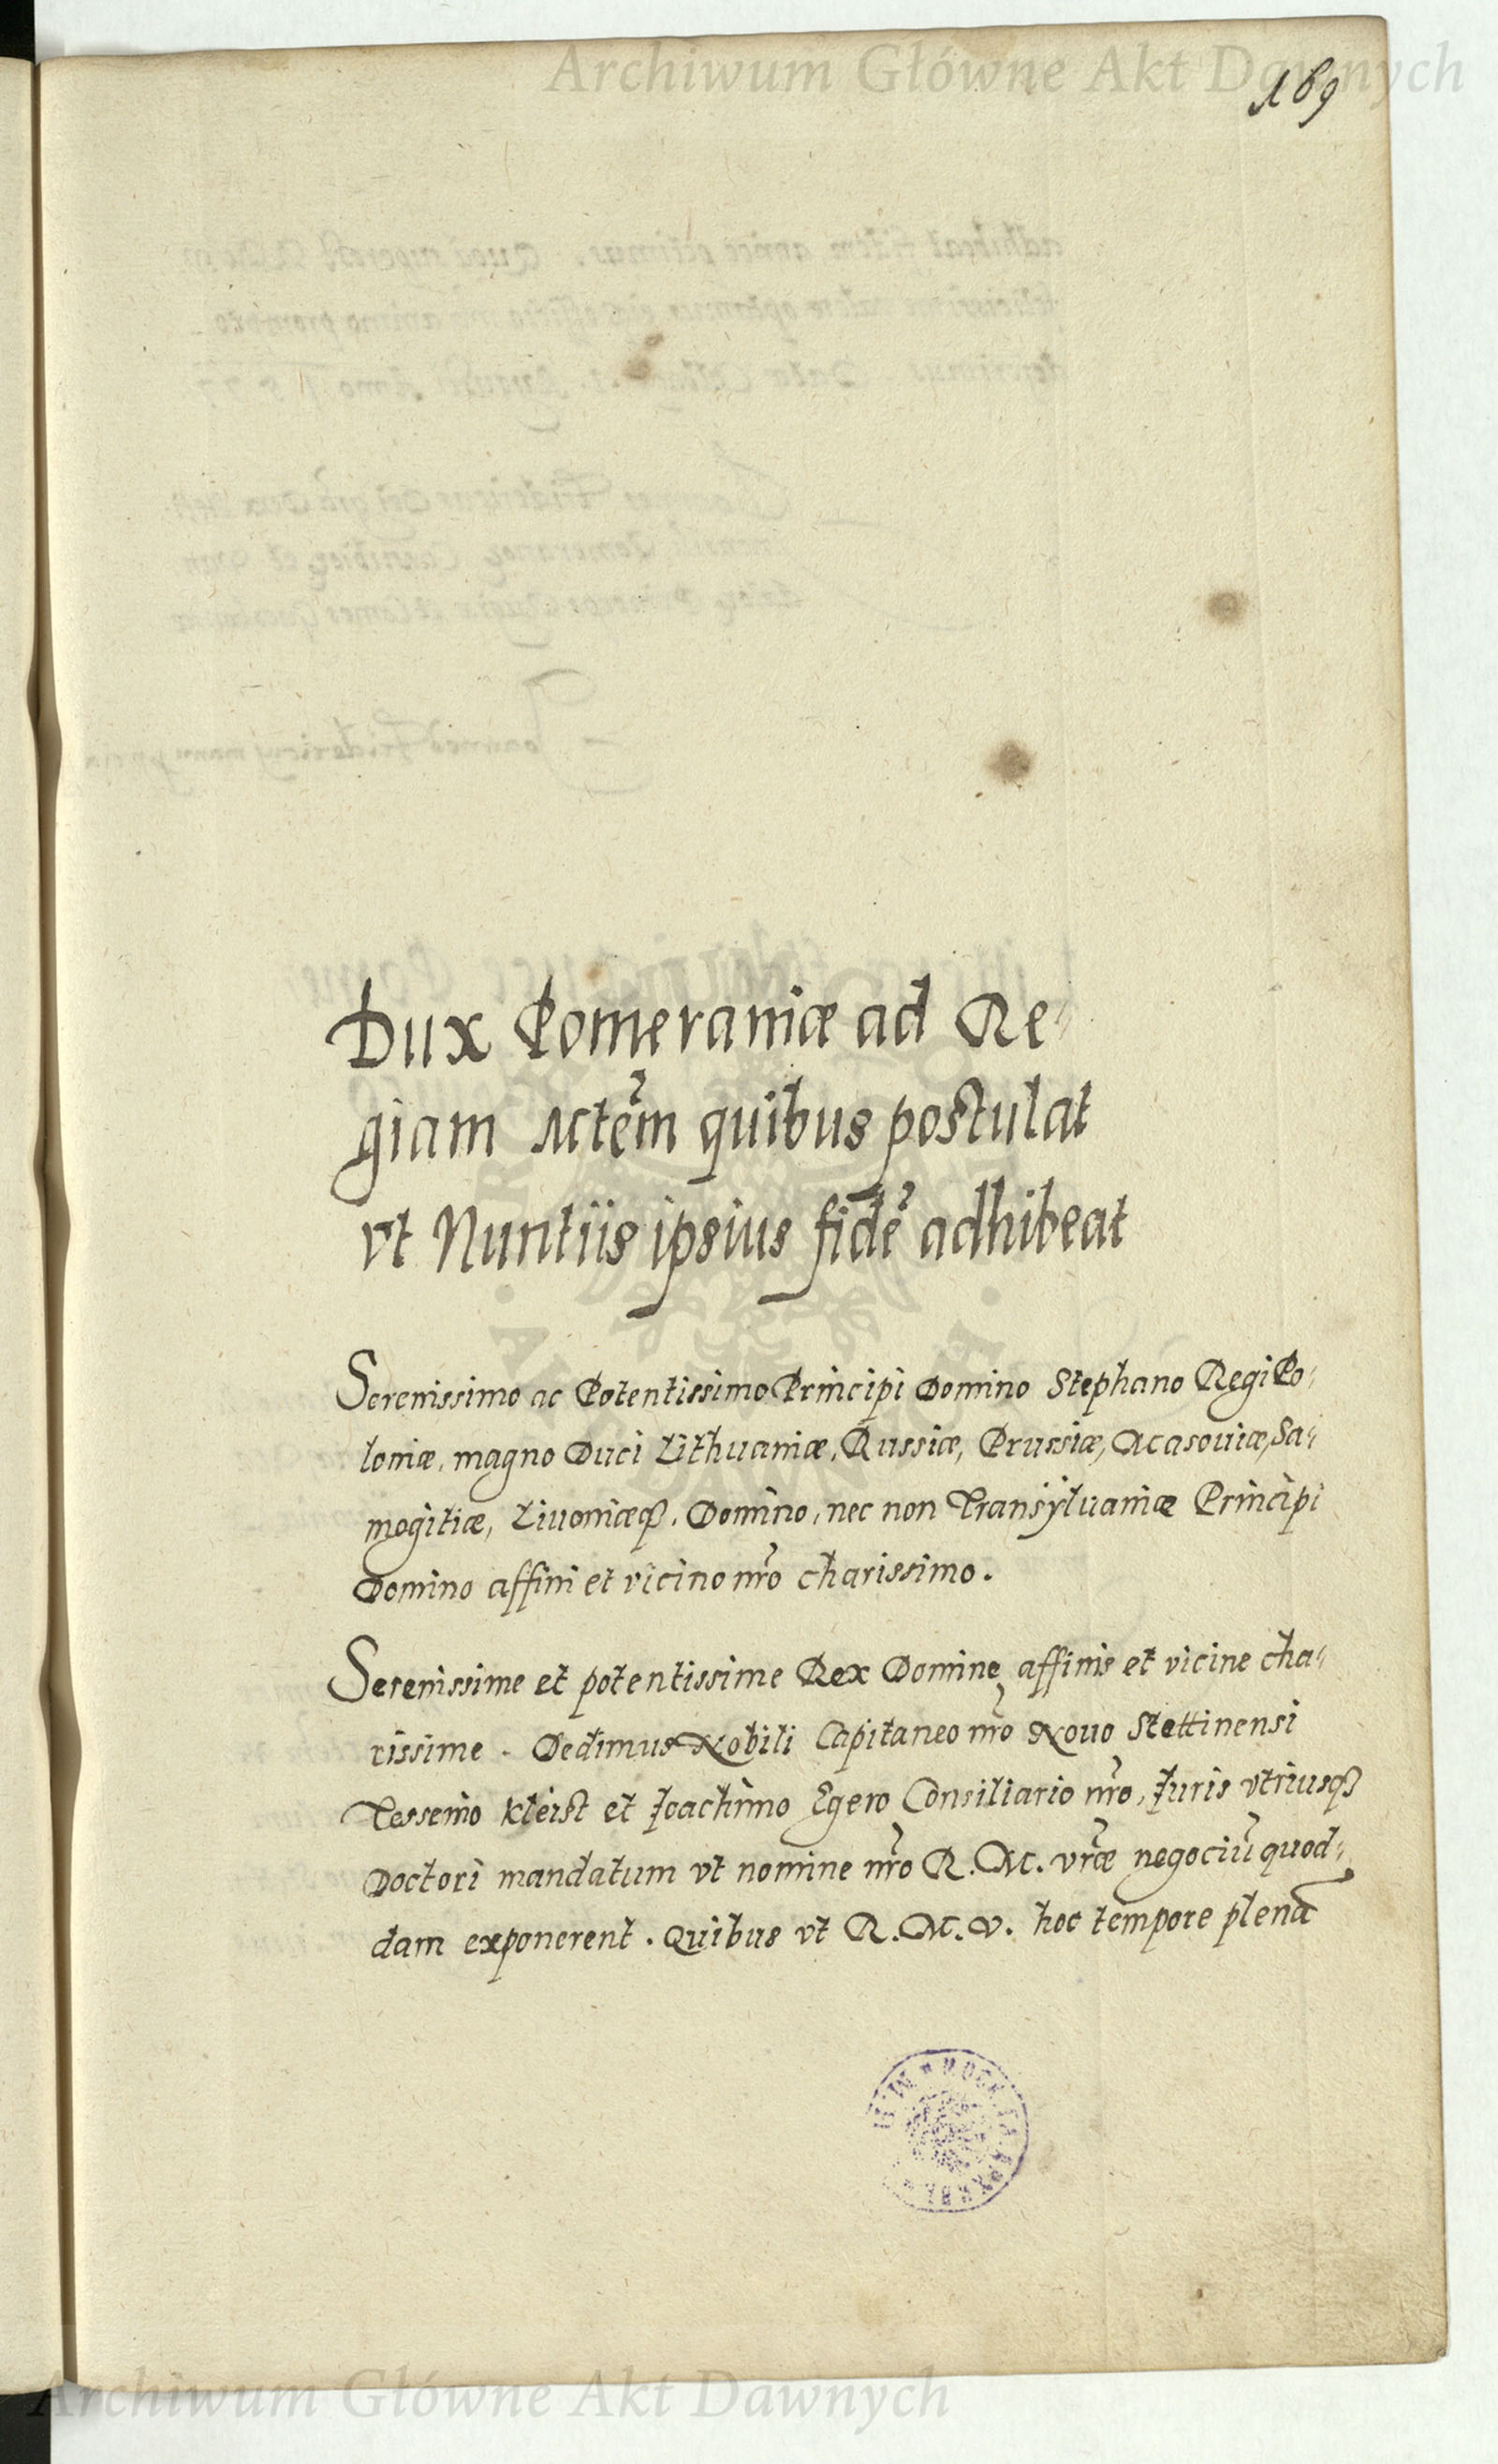 Archiwum Główne Akt Dawnych
169
Dux Pomeraniæ ad Re-
giam Mtem̃ quibus postulat
vt Nuntiis ipsius fidẽ adhibeat
Serenissimo ac Potentissimo Principi Domino Stephano Regi Po-
loniæ, magno Duci Lithuaniæ, Russiæ, Prussiæ, Masouiæ, Sa-
mogitiæ, Liuoniæqȝ. Domino, nec non Transyluaniæ Principi
Domino affini et vicino nr̃o charissimo.
Serenissime et potentissime Rex Domine affinis et vicine cha-
rissime. Dedimus Nobili Capitaneo nr̃o Nouo Stettinensi
Tessenio Kleist et Joachimo Egero Consiliario nr̃o, Juris vtriusqȝ
Doctori mandatum vt nomine nr̃o R. M. vr̃æ negociũ quod-
dam exponerent. Quibus vt R. M. V. hoc tempore plenã
Archiwum Główne Akt Dawnych